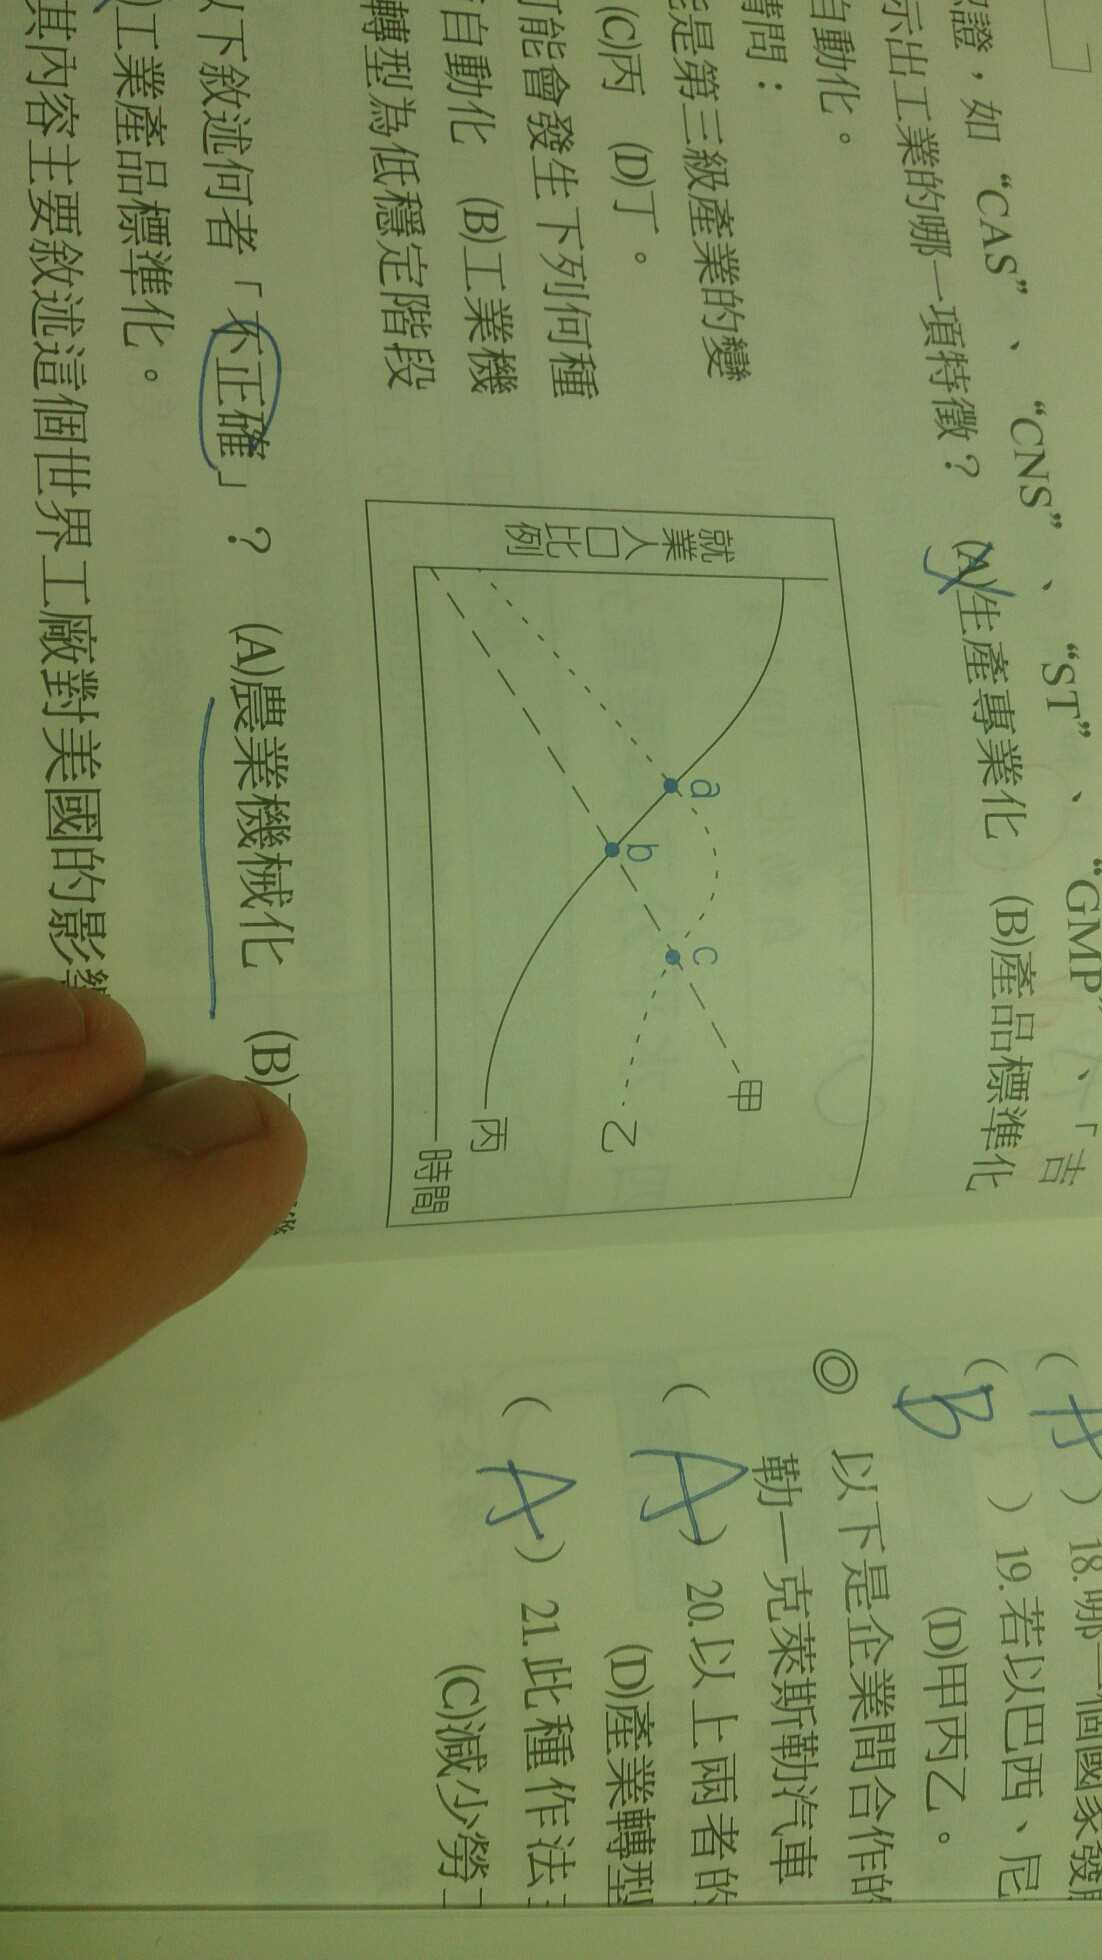 證，如“CAS”、“CNS”、“ST”、“GMP”、「吉
示出工業的哪一項特徵？ (A)生產專業化 (B)產品標準化
自動化。
請問：
能是第三級產業的變
(C)丙 (D)丁。
可能會發生下列何種
自動化 (B)工業機
轉型為低穩定階段
就業人口比例
a
b
c
甲
乙
丙
時間
以下敘述何者「不正確」？ (A)農業機械化 (B)
工業產品標準化。
其內容主要敘述這個世界工廠對美國的影響
( A ) 18.哪一個國家發
( B ) 19.若以巴西、尼
(D)甲丙乙。
◎ 以下是企業間合作的
勒—克萊斯勒汽車
( A ) 20.以上兩者的
(D)產業轉型
( A ) 21.此種作法
(C)減少勞